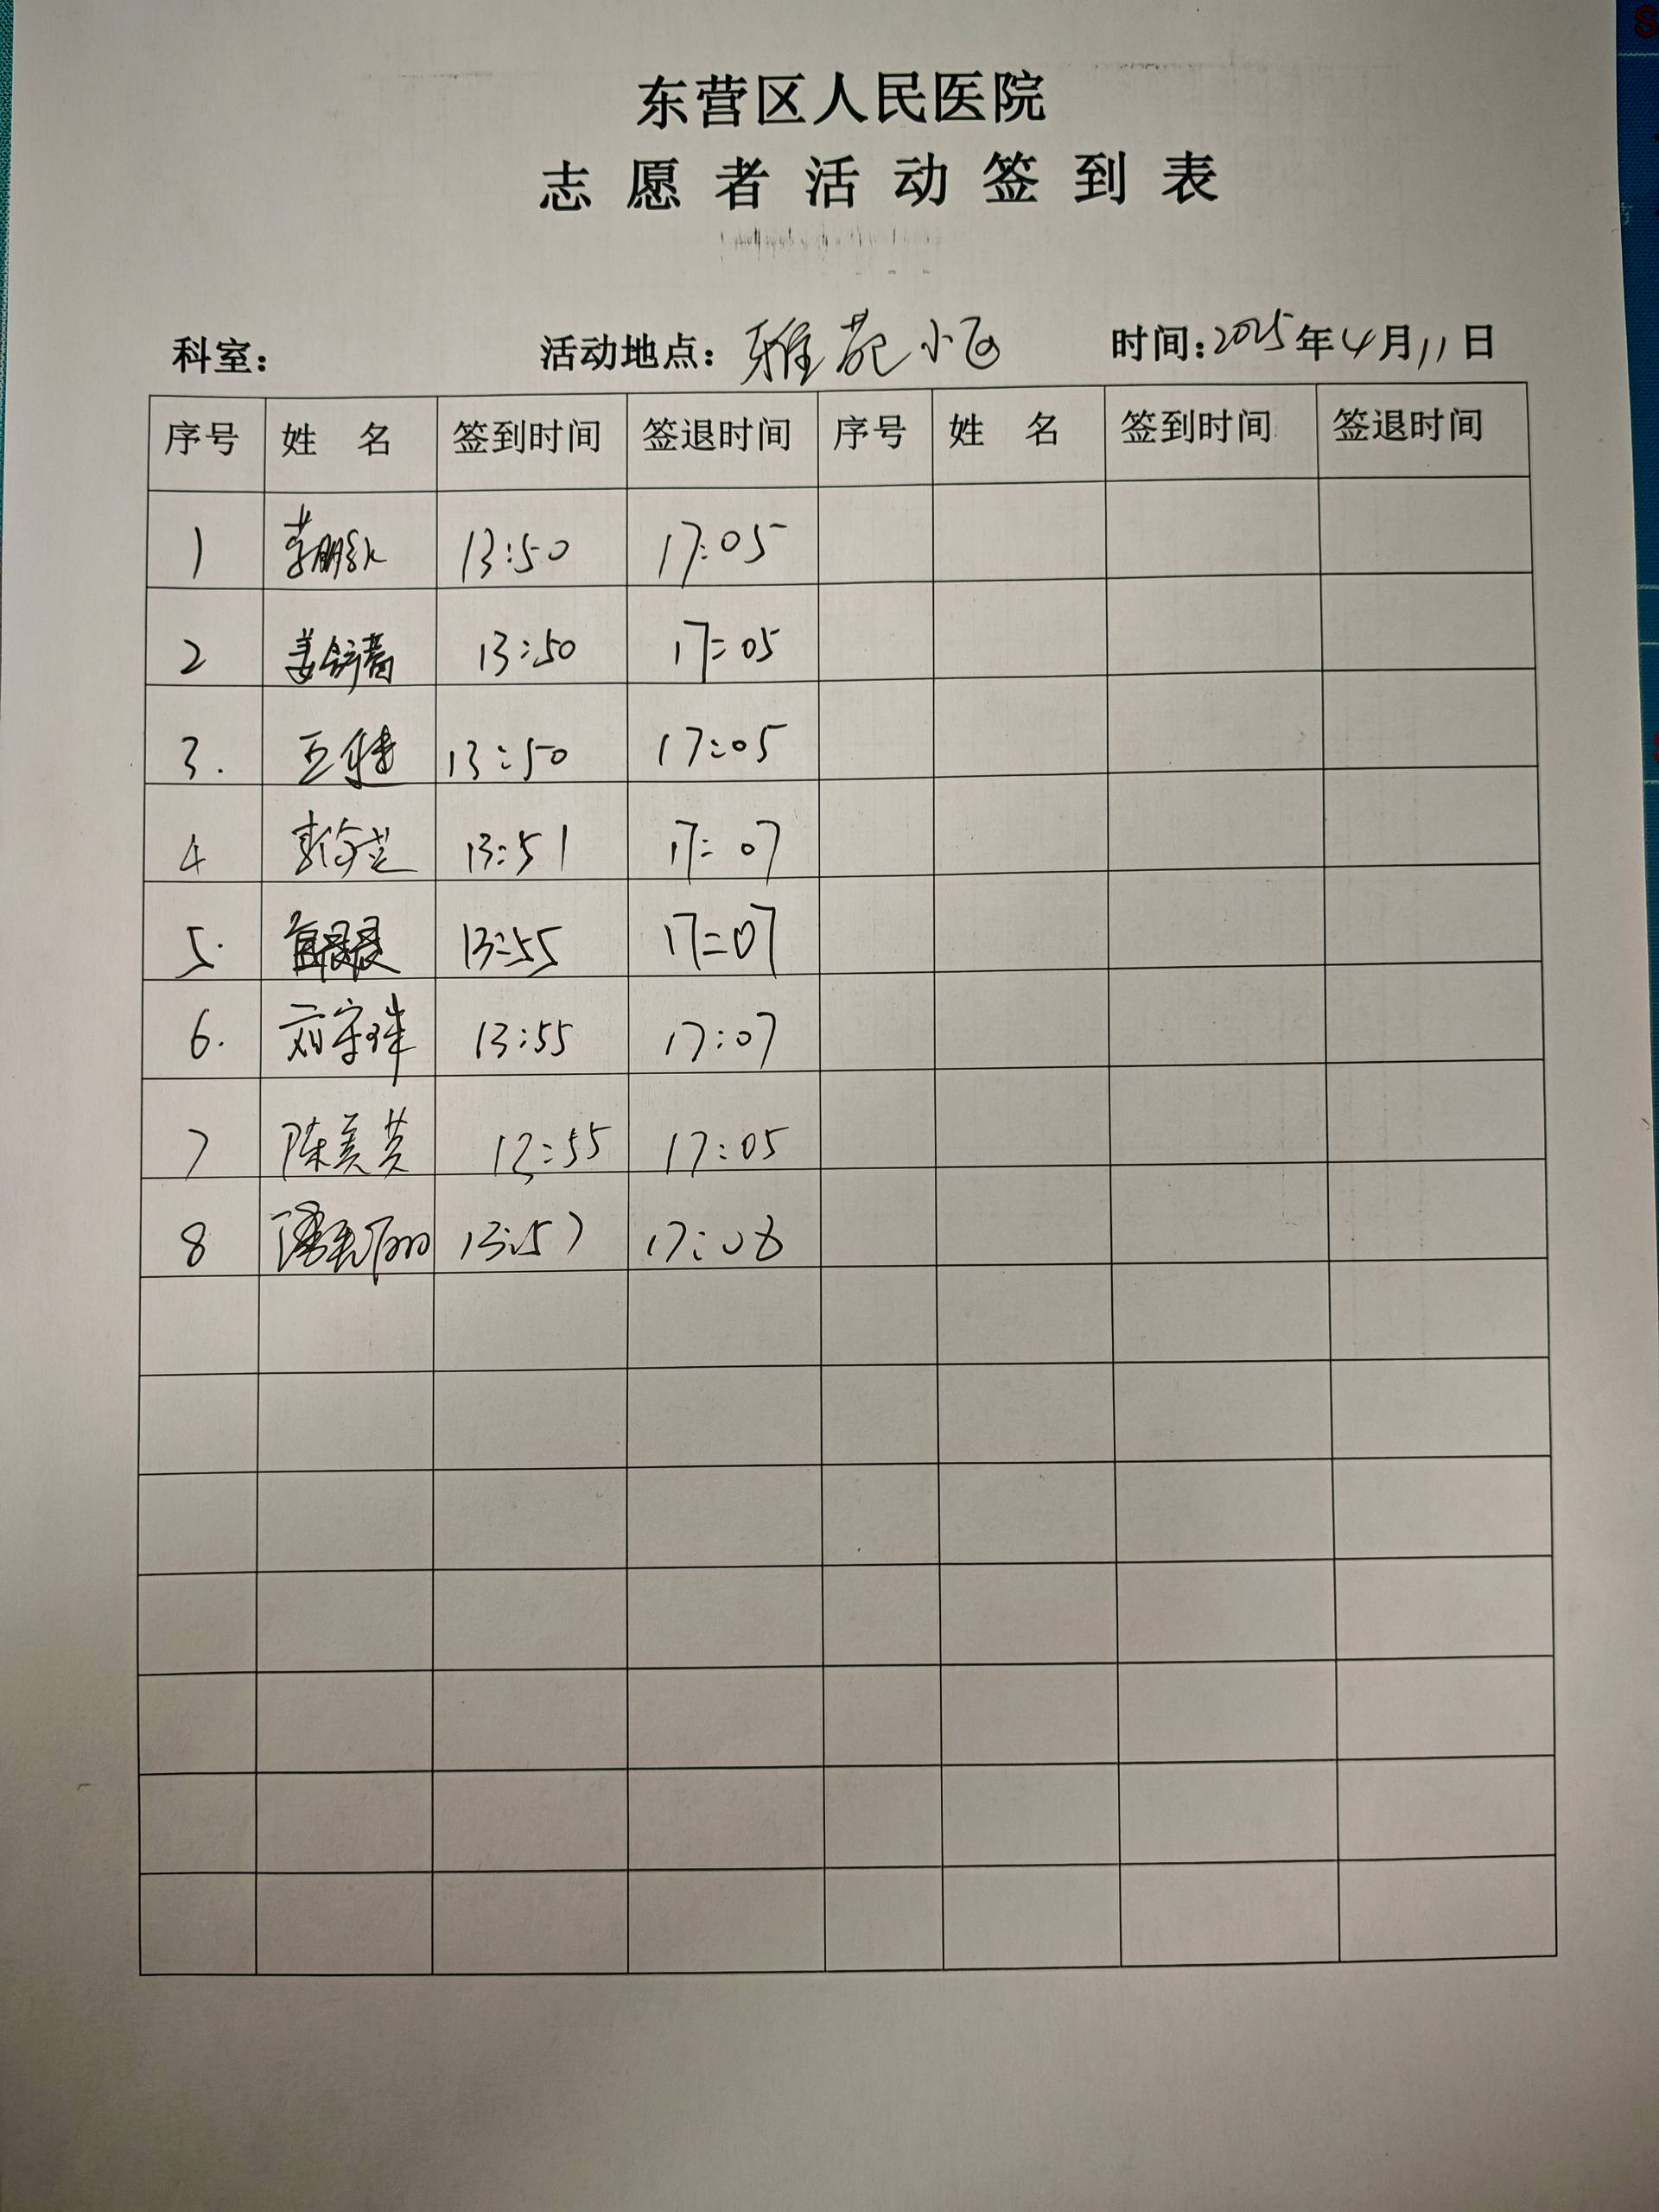 东营区人民医院
志愿者活动签到表
科室： 活动地点：雅苑小区 时间：2025年4月11日
序号 姓 名 签到时间 签退时间 序号 姓 名 签到时间 签退时间
1 13:50 17:05
2 13:50 17:05
3. 13:50 17:05
4 13:51 17:07
5. 13:55 17:07
6. 13:55 17:07
7 陈美芳 13:55 17:05
8 13:57 17:08